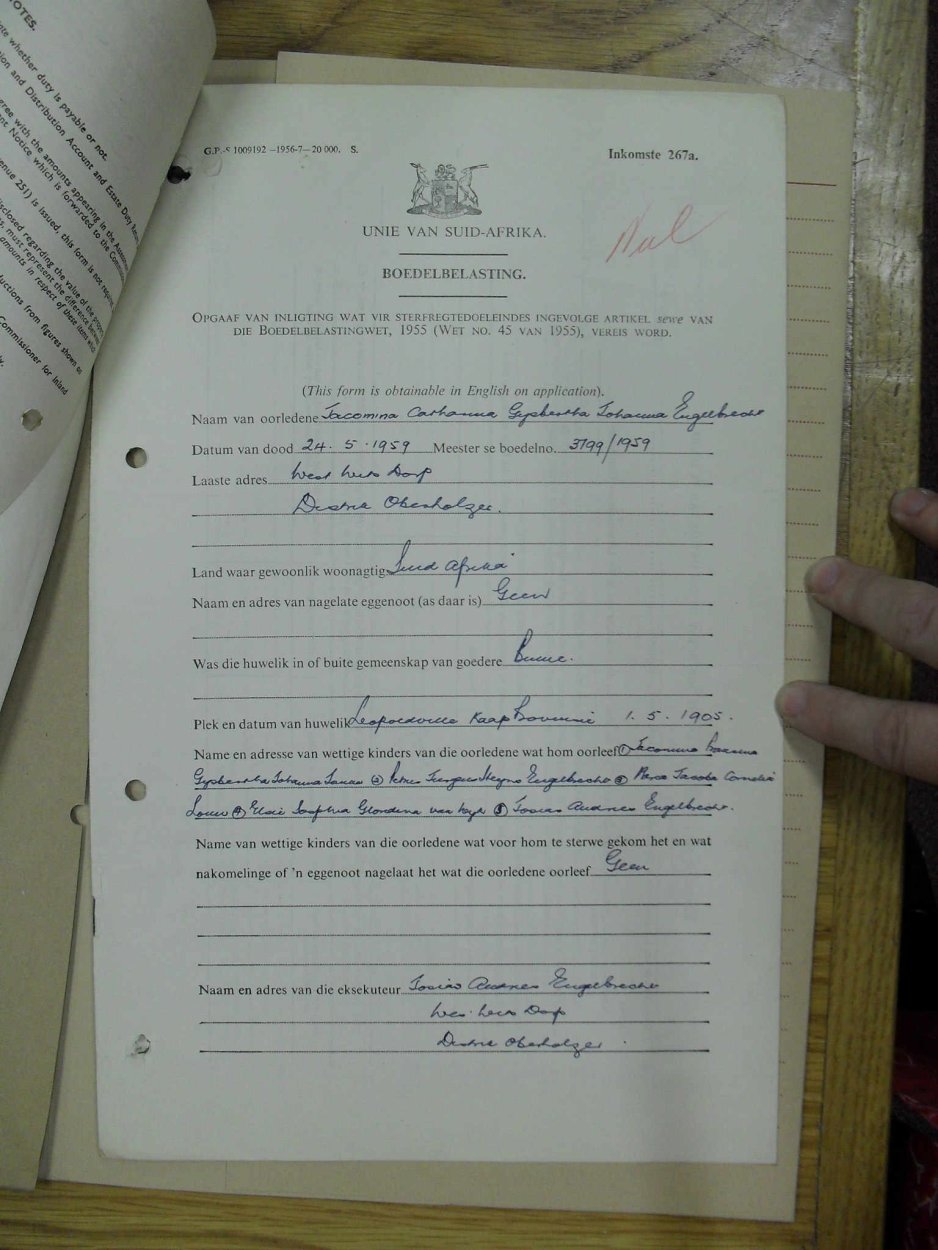 OTES.
te whether duty is payable or not.
ion and Distribution Account and Estate Duty
gree with the amounts appearing in the
nt Notice which is forwarded to the
venue 251) is issued, this form is not
sclosed regarding the value of the
s, must represent the difference
amounts in respect of those items
ductions from figures shown
Commissioner for Inland
y.
G.P.-S 1009192 —1956-7—20 000. S.
Inkomste 267a.
Nul
UNIE VAN SUID-AFRIKA.
BOEDELBELASTING.
OPGAAF VAN INLIGTING WAT VIR STERFREGTEDOELEINDES INGEVOLGE ARTIKEL sewe VAN
DIE BOEDELBELASTINGWET, 1955 (WET NO. 45 VAN 1955), VEREIS WORD.
(This form is obtainable in English on application).
Naam van oorledene Jacomina Catharina Gysbertha Johanna Engelbrecht
Datum van dood 24. 5. 1959 Meester se boedelno. 3799/1959
Laaste adres West Wits Dorp
Distrik Oberholzer.
Land waar gewoonlik woonagtig Suid Afrika
Naam en adres van nagelate eggenoot (as daar is) Geen
Was die huwelik in of buite gemeenskap van goedere Binne.
Plek en datum van huwelik Kaap Provinsie 1. 5. 1905.
Name en adresse van wettige kinders van die oorledene wat hom oorleef ① Jacomina
Gysbertha Johanna ② Engelbrecht ③ Jacoba Cornelia
Louw ④ Sophia van Wyk ⑤ Josias Andries Engelbrecht.
Name van wettige kinders van die oorledene wat voor hom te sterwe gekom het en wat
nakomelinge of 'n eggenoot nagelaat het wat die oorledene oorleef Geen
Naam en adres van die eksekuteur Josias Andries Engelbrecht
Wes. Wits Dorp
Distrik Oberholzer.